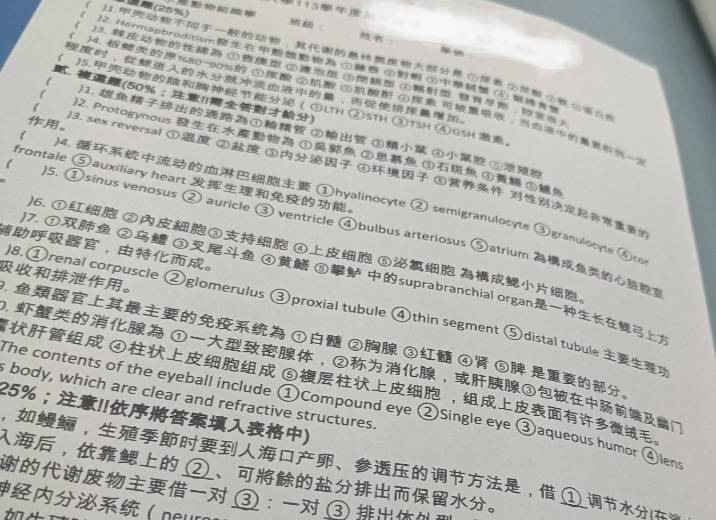 壹.選選(25%)
班級：
姓名：
)1.甲壳动物不同于一般的动物，其代谢的最终氮废物大部分是①尿素②尿酸③氨④蛋白质
)2. Hermaphroditism發生在
)3. 棘皮动物的性線為
)4. 板鳃类的原%80~90%的①尿酸②肌酸③肌酸酐④尿素 可被重吸收，当血液中的量累积到一定
程度时，從鳃进入的水分就冲淡血液中的量，而促使排尿量增加。
)5.甲壳动物的脑和胸神经节能分泌(①LTH ②STH ③TSH ④GSH 激素。
貳. 複選題(50%；注意!!需全答對才給分)
)1. 雄魚精子排出的通路為①輸精管 ②輸出管 ③精小葉 ④小葉腔 ⑤泄殖腔
)2. Protogynous 發生在水產動物為 ①吳郭魚 ②思慕魚 ③石斑魚 ④黃鱔 ⑤鱸魚
)3. sex reversal ①溫度 ②盐度 ③内分泌因子 ④环境因子 ⑤营养条件 对性别决定起非常重要的
作用。
)4. 循环系统中流动的血淋巴细胞主要 ①hyalinocyte ② semigranulocyte ③granulocyte ④cor
frontale ⑤auxiliary heart 发挥生理和免疫的功能。
)5. ①sinus venosus ② auricle ③ ventricle ④bulbus arteriosus ⑤atrium 為構成鱼类的心脏腔室
。
)6. ①红细胞 ②內皮細胞③支持细胞 ④上皮细胞 ⑤泌氯細胞 為構成鰓小片细胞。
)7. ①双肺鱼 ②乌鳢 ③叉尾斗鱼 ④黄鳝 ⑤攀鲈 中的suprabranchial organ是一种生长在鳃弓上方
辅助呼吸器官，由特化而成。
)8.①renal corpuscle ②glomerulus ③proxial tubule ④thin segment ⑤distal tubule 主要生理功
吸收和排泄作用。
9. 鱼類器官上其最主要的免疫系统為 ①白髓 ②胸腺 ③红髓 ④肾 ⑤脾 是重要的部分。
0. 虾蟹类的消化腺為 ①一大型致密腺体，②称为消化腺，或肝胰腺③包被在中肠前端及幽门
囊状肝管组成 ④柱状上皮细胞组成 ⑤複层柱状上皮细胞，组成上皮表面有许多微绒毛。
The contents of the eyeball include ①Compound eye ②Single eye ③aqueous humor ④lens
s body, which are clear and refractive structures.
25%；注意!!依序將答案填入表格中)
，如鳗鲡，生殖季節时要到人海口产卵、参透压的调节方法是，借 ① 调节水分(在淡
入海后，依靠鰓上的 ② 、可將餘的盐分排出而保留水分。
谢的代谢废物主要借一对 ③ ：一对 ③ 排出体外
神经内分泌系统（neuro